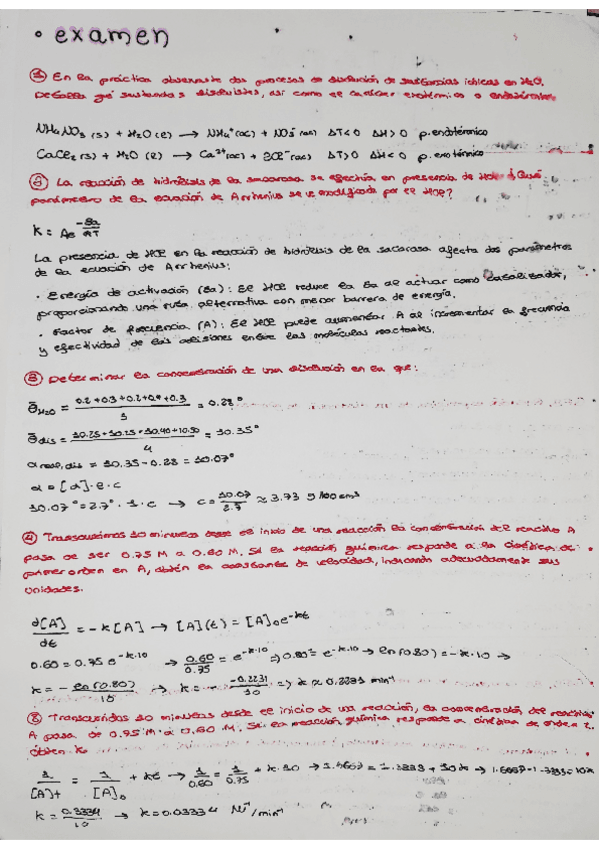 • examen
① En la práctica observaste dos procesos de disolución de sustancias iónicas en H2O.
Detalla qué sustancias disolviste, así como el carácter exotérmico o endotérmico.
NH4NO3 (s) + H2O (l) → NH4+ (ac) + NO3- (ac) ΔT<0 ΔH>0 p. endotérmico
CaCl2 (s) + H2O (l) → Ca2+ (ac) + 2Cl- (ac) ΔT>0 ΔH<0 p. exotérmico
② La reacción de hidrólisis de la sacarosa se efectúa en presencia de HCl ¿Qué
parámetro de la ecuación de Arrhenius se ve modificado por el HCl?
K = Ae^(-Ea/RT)
La presencia de HCl en la reacción de hidrólisis de la sacarosa afecta dos parámetros
de la ecuación de Arrhenius:
· Energía de activación (Ea): El HCl reduce la Ea al actuar como catalizador,
proporcionando una ruta alternativa con menor barrera de energía.
· Factor de frecuencia (A): El HCl puede aumentar A al incrementar la frecuencia
y efectividad de las colisiones entre las moléculas reactantes.
③ Determinar la concentración de una disolución en la que:
θ̄H2O = (0.2+0.3+0.2+0.4+0.3)/5 = 0.28°
θ̄dis = (10.25+10.25+10.40+10.50)/4 = 10.35°
α real, dis = 10.35-0.28 = 10.07°
α = [α]·l·c
10.07° = 2.7°·1·c → c = 10.07/2.7 ≈ 3.73 g/100cm3
④ Transcurridos 10 minutos desde el inicio de una reacción la concentración del reactivo A
pasa de ser 0.75 M a 0.60 M. Si la reacción química responde a la cinética de
primer orden en A, obtén la constante de velocidad, indicando adecuadamente sus
unidades.
d[A]/dt = -k[A] → [A](t) = [A]0e^-kt
0.60 = 0.75 e^-k·10 → 0.60/0.75 = e^-k·10 => 0.80 = e^-k·10 → ln(0.80) = -k·10 →
k = - ln(0.80)/10 → k = - -0.2231/10 => k ≈ 0.2231 min-1
⑤ Transcurridos 10 minutos desde el inicio de una reacción, la concentración del reactivo
A pasa de 0.75 M a 0.60 M. Si la reacción química responde a cinética de orden 2.
Obtén k
1/[A]t = 1/[A]0 + kt → 1/0.60 = 1/0.75 + k·10 → 1.6667 = 1.3333 + 10k → 1.6667-1.3333=10k
k = 0.3334/10 → k = 0.03334 M-1/min-1